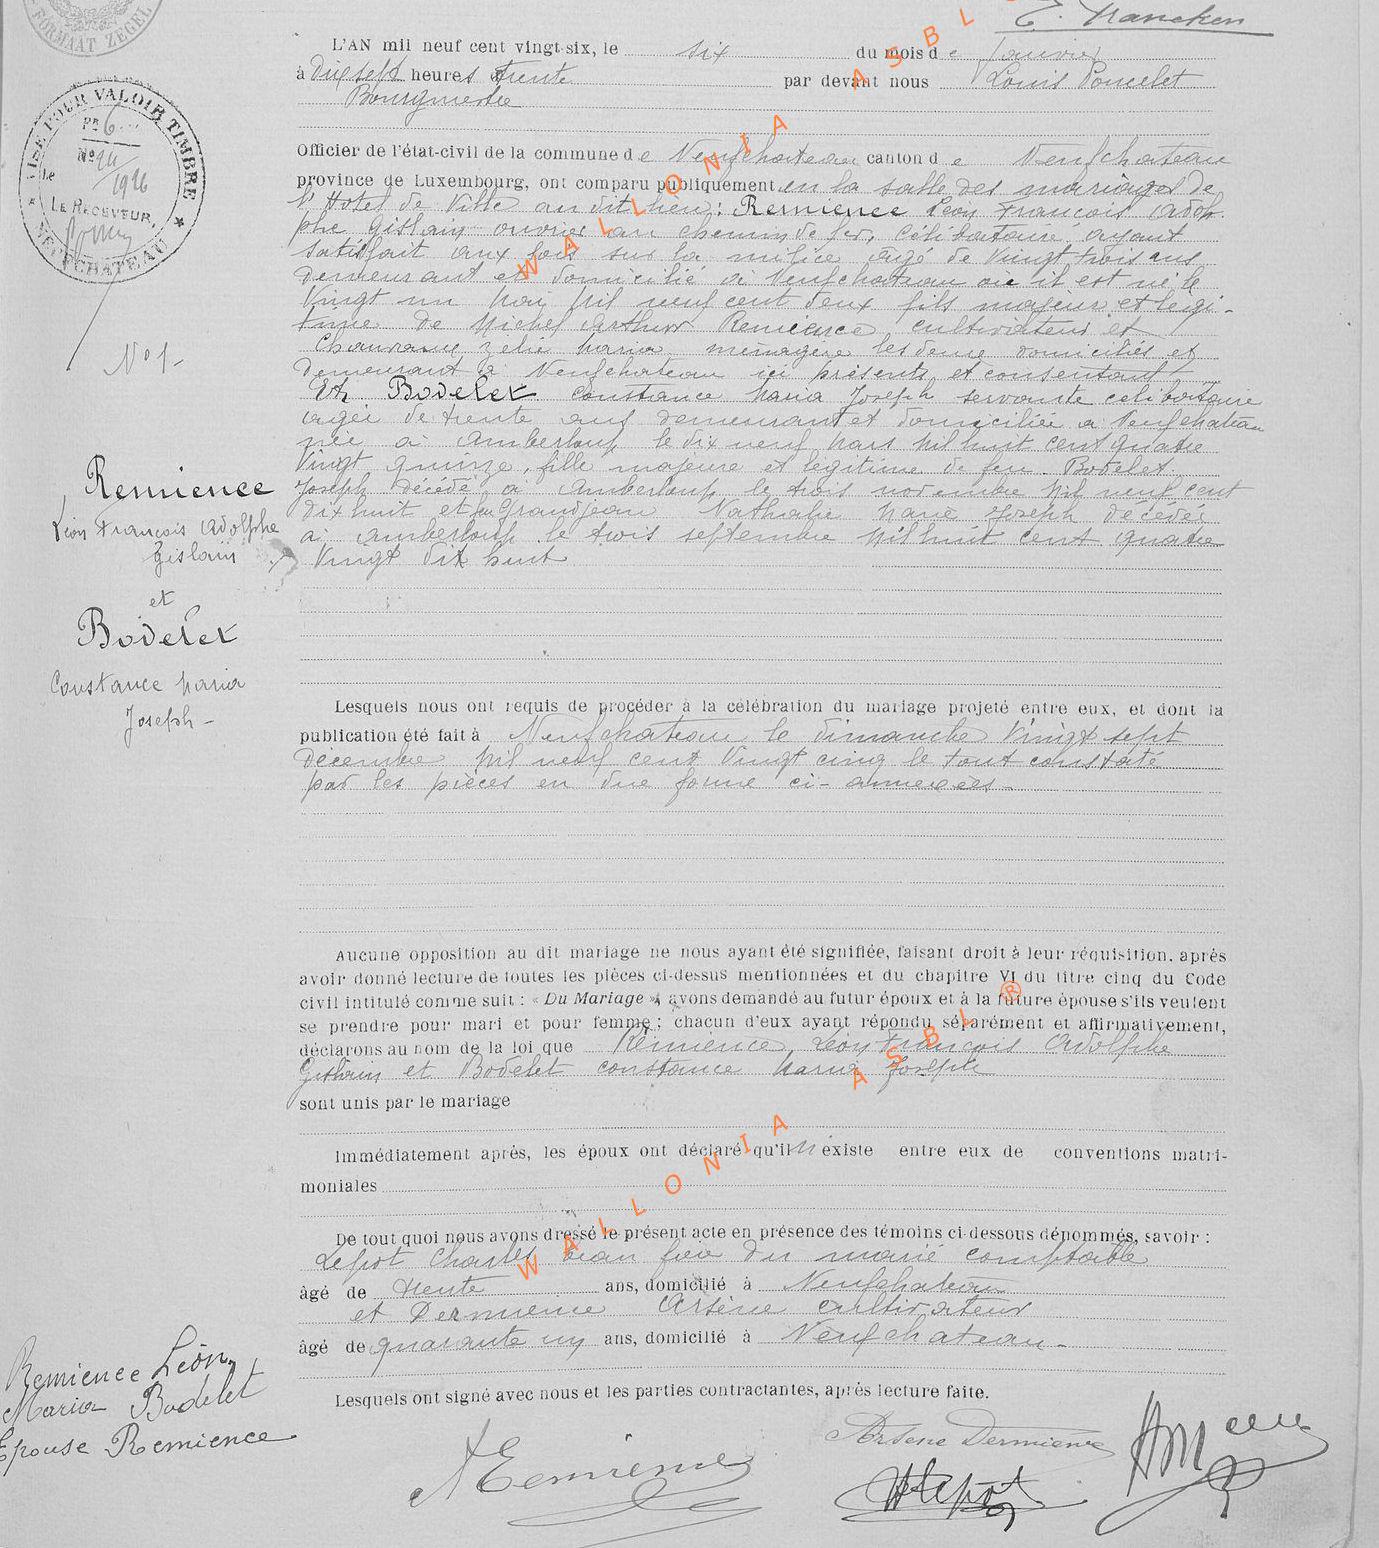 FORMAAT ZEGEL
E. Francken
L'AN mil neuf cent vingt-six, le six du mois de Janvier
à dix sept heures trente par devant nous Louis Poncelet
Bourgmestre
VISÉ POUR VALOIR TIMBRE
Le
1926
LE RECEVEUR,
NEUFCHATEAU
Officier de l'état-civil de la commune de Neufchateau canton de Neufchateau
province de Luxembourg, ont comparu publiquement en la salle des mariages de
l'Hotel de Ville au dit lieu: Remience Léon François Adol-
phe Gislain ouvrier au chemin de fer, célibataire, ayant
satisfait aux lois sur la milice, âgé de Vingt trois ans
demeurant et domicilié à Neufchateau où il est né le
Vingt un Mai Mil neuf cent deux fils majeur et légi-
time de Michel Arthur Remience cultivateur et
Zelie Maria ménagère les deux domiciliés et
demeurant à Neufchateau ici présents et consentant
Et Bodelet Constance Maria Joseph servante célibataire
agée de trente ans demeurant et domiciliée à Neufchateau
née à Amberloup le dix neuf Mars Mil huit cent quatre
Vingt quinze, fille majeure et légitime de feu Bodelet
Joseph décédé à Amberloup le trois novembre Mil neuf cent
dix huit et feu Grandjean Nathalie Marie Joseph décédée
à Amberloup le trois septembre Mil huit cent quatre
Vingt dix huit
No 1-
Remience
Léon François Adolphe
Gislain
et
Bodelet
Constance Maria
Joseph -
Lesquels nous ont requis de procéder à la célébration du mariage projeté entre eux, et dont la
publication été fait à Neufchateau le dimanche Vingt sept
décembre Mil neuf cent Vingt cinq le tout constaté
par les pièces en due forme ci-annexées -
Aucune opposition au dit mariage ne nous ayant été signifiée, faisant droit à leur réquisition, après
avoir donné lecture de toutes les pièces ci-dessus mentionnées et du chapitre VI du titre cinq du Code
civil intitulé comme suit : « Du Mariage », avons demandé au futur époux et à la future épouse s'ils veulent
se prendre pour mari et pour femme ; chacun d'eux ayant répondu séparément et affirmativement,
déclarons au nom de la loi que Remience Léon François Adolphe
Gislain et Bodelet Constance Maria Joseph
sont unis par le mariage
Immédiatement après, les époux ont déclaré qu'il n'existe entre eux de conventions matri-
moniales
De tout quoi nous avons dressé le présent acte en présence des témoins ci-dessous dénommés, savoir :
Lepot Charles beau frère du marié comptable
âgé de trente ans, domicilié à Neufchateau
et Dermience Arsène cultivateur
âgé de quarante un ans, domicilié à Neufchateau -
Lesquels ont signé avec nous et les parties contractantes, après lecture faite.
Remience Léon,
Maria Bodelet
Epouse Remience
Arsène Dermience
Lepot
WALLONIA ASBL
WALLONIA ASBL ®